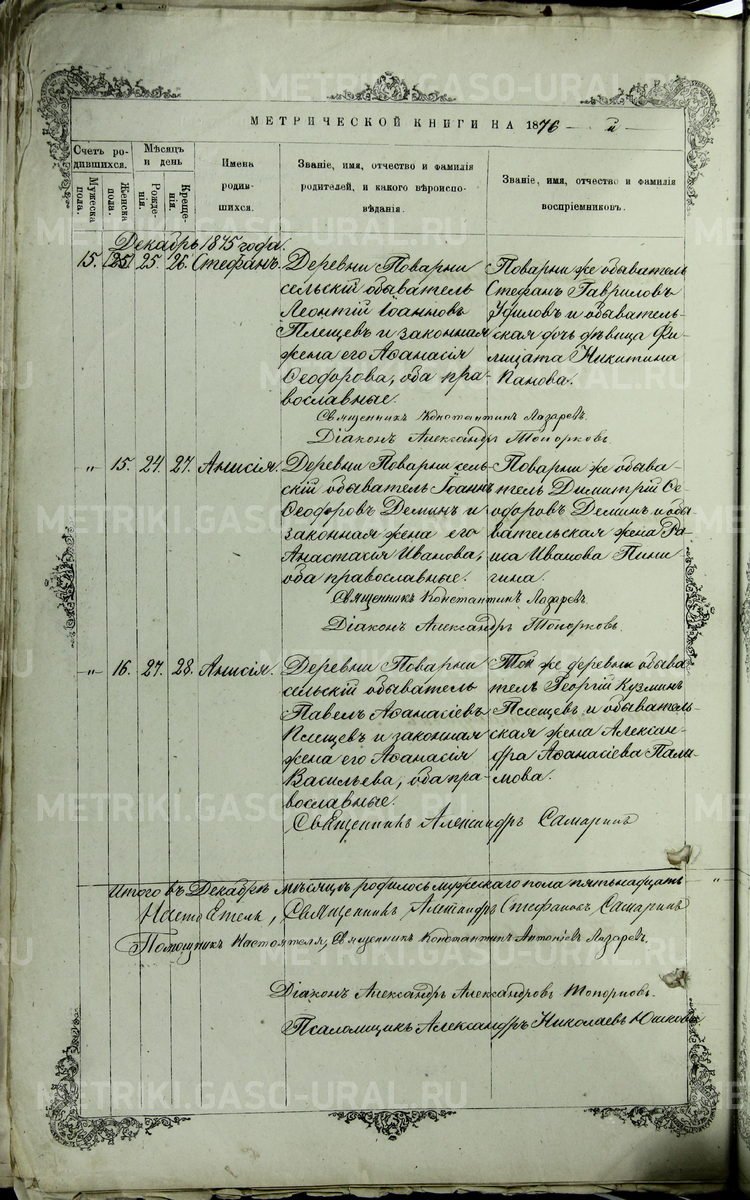 МЕТРИЧЕСКОЙ КНИГИ НА 1876 й
Счетъ родившихся.
Мужеска пола.
Женска пола.
Мѣсяцъ и день
Рожденія.
Крещенія.
Имена родившихся.
Званіе, имя, отчество и фамилія родителей, и какого вѣроисповѣданія.
Званіе, имя, отчество и фамилія воспріемниковъ.
Декабрь 1875 года.
15. 25. 26. Стефанъ.
Деревни Поварни
сельскій обыватель
Леонтій Іоанновъ
Плещевъ и законная
жена его Аѳанасія
Ѳеодорова, оба пра-
вославные.
Поварни же обыватель
Стефанъ Гавриловъ
Уфиловъ и обыватель-
ская дочь дѣвица Фи-
лицата Никитина
Панова.
Священникъ Константинъ Лазаревъ.
Діаконъ Александръ Топорковъ
„ 15. 24. 27. Анисія.
Деревни Поварни сель-
скій обыватель Іоаннъ
Ѳеодоровъ Деминъ и
законная жена его
Анастасія Иванова,
оба православные.
Поварни же обыва-
тель Димитрій Ѳе-
одоровъ Деминъ и обы
вательская жена Ра-
иса Иванова Пини
гина.
Священникъ Константинъ Лазаревъ
Діаконъ Александръ Топорковъ.
„ 16. 27. 28. Анисія.
Деревни Поварни
сельскій обыватель
Павелъ Аѳанасіевъ
Плещевъ и законная
жена его Аѳанасія
Васильева, оба пра-
вославные.
Той же деревни обыва
тель Георгій Кузминъ
Плещевъ и обыватель-
ская жена Алексан-
дра Аѳанасіева Пали-
мова.
Священникъ Александръ Самаринъ
Итого въ Декабрѣ мѣсяцѣ родилось мужескаго пола пятьнадцать
Настоятель, Священникъ Александръ Стефановъ Самаринъ
Помощникъ Настоятеля, Священникъ Константинъ Антоніевъ Лазаревъ,
Діаконъ Александръ Александровъ Топорковъ.
Псаломщикъ Александръ Николаевъ Юшковъ
METRIKI.GASO-URAL.RU